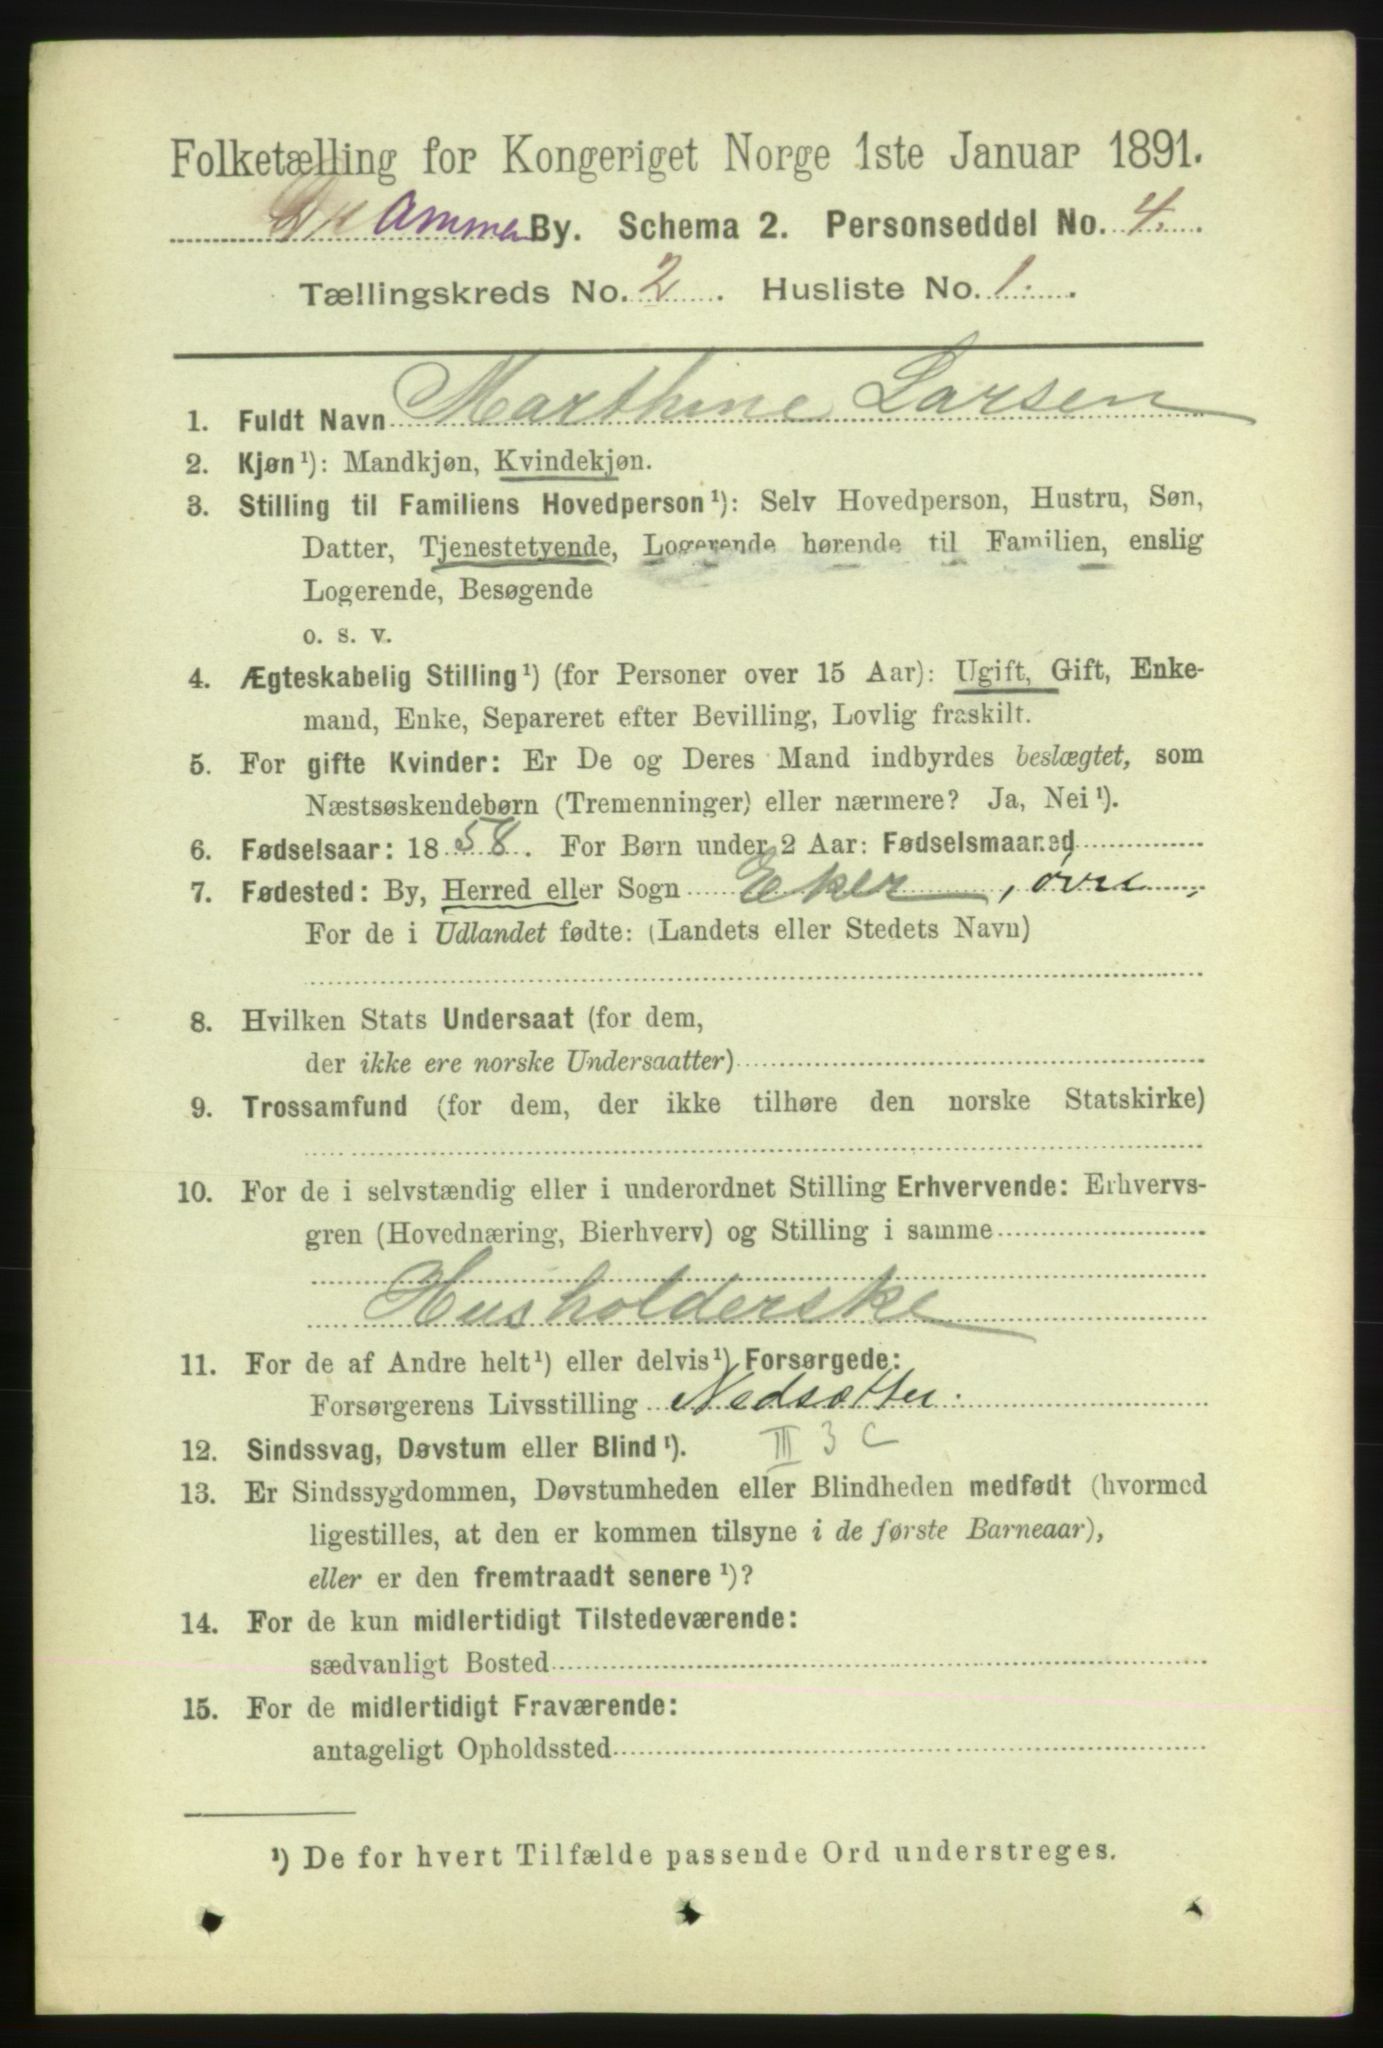 Folketælling for Kongeriget Norge 1ste Januar 1891.
Drammen By. Schema 2. Personseddel No. 4.
Tællingskreds No. 2. Husliste No. 1.
1. Fuldt Navn Marthine Larsen
2. Kjøn¹): Mandkjøn, Kvindekjøn.
3. Stilling til Familiens Hovedperson¹): Selv Hovedperson, Hustru, Søn,
Datter, Tjenestetyende, Logerende hørende til Familien, enslig
Logerende, Besøgende
o. s. v.
4. Ægteskabelig Stilling¹) (for Personer over 15 Aar): Ugift, Gift, Enke-
mand, Enke, Separeret efter Bevilling, Lovlig fraskilt.
5. For gifte Kvinder: Er De og Deres Mand indbyrdes beslægtet, som
Næstsøskendebørn (Tremenninger) eller nærmere? Ja, Nei¹).
6. Fødselsaar: 1858. For Børn under 2 Aar: Fødselsmaaned
7. Fødested: By, Herred eller Sogn Eker, øvre
For de i Udlandet fødte: (Landets eller Stedets Navn)
8. Hvilken Stats Undersaat (for dem,
der ikke ere norske Undersaatter)
9. Trossamfund (for dem, der ikke tilhøre den norske Statskirke)
10. For de i selvstændig eller i underordnet Stilling Erhvervende: Erhvervs-
gren (Hovednæring, Bierhverv) og Stilling i samme
Husholderske
11. For de af Andre helt¹) eller delvis¹) Forsørgede:
Forsørgerens Livsstilling
12. Sindssvag, Døvstum eller Blind¹). III 3 c
13. Er Sindssygdommen, Døvstumheden eller Blindheden medfødt (hvormed
ligestilles, at den er kommen tilsyne i de første Barneaar),
eller er den fremtraadt senere¹)?
14. For de kun midlertidigt Tilstedeværende:
sædvanligt Bosted
15. For de midlertidigt Fraværende:
antageligt Opholdssted
¹) De for hvert Tilfælde passende Ord understreges.